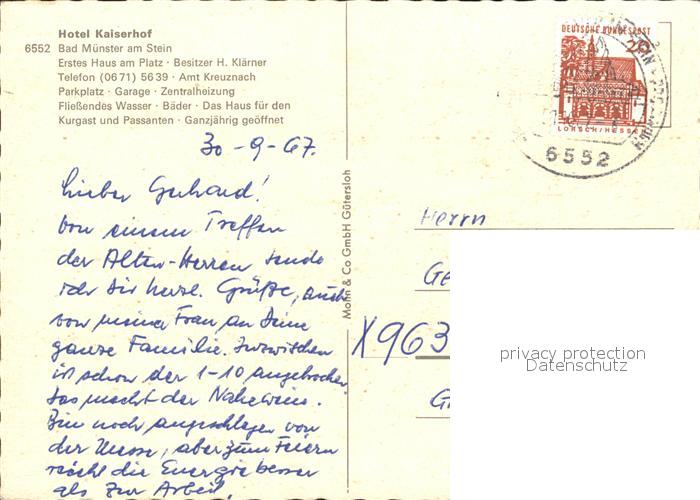 Hotel Kaiserhof
6552 Bad Münster am Stein
Erstes Haus am Platz · Besitzer H. Klärner
Telefon (0671) 5639 · Amt Kreuznach
Parkplatz · Garage · Zentralheizung
Fließendes Wasser · Bäder · Das Haus für den
Kurgast und Passanten · Ganzjährig geöffnet
30-9-67.
Lieber Gerhard!
Von einem Treffen
der Alten-Herren sende
ich dir herzl. Grüße, auch
von meiner Frau an deine
ganze Familie. Inzwischen
ist schon der 1-10 angebrochen.
Das macht der Nahewein.
Bin noch angeschlagen von
der Messe, aber zum Feiern
reicht die Energie besser
als zur Arbeit.
Mohn & Co GmbH Gütersloh
DEUTSCHE BUNDESPOST
20
LORSCH/HESSEN
6552
Herrn
Ge
X963
G
privacy protection
Datenschutz